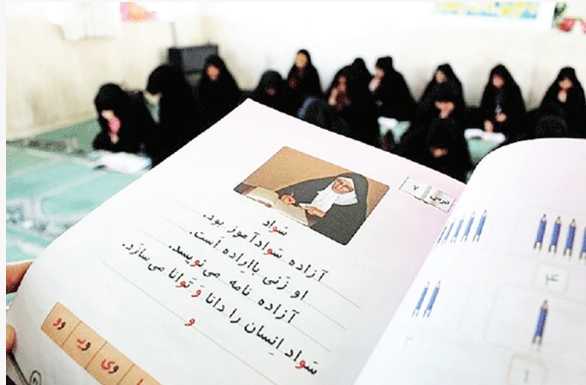 درس ۷
سَواد
آزاده سَوادآموز بود.
او زَنی بااِراده اَست.
آزاده نامه می‌نِویسد.
سَواد اِنسان را دانا وَ تَوانا می‌سازَد.
و
وی ویـ وو
۴
۱